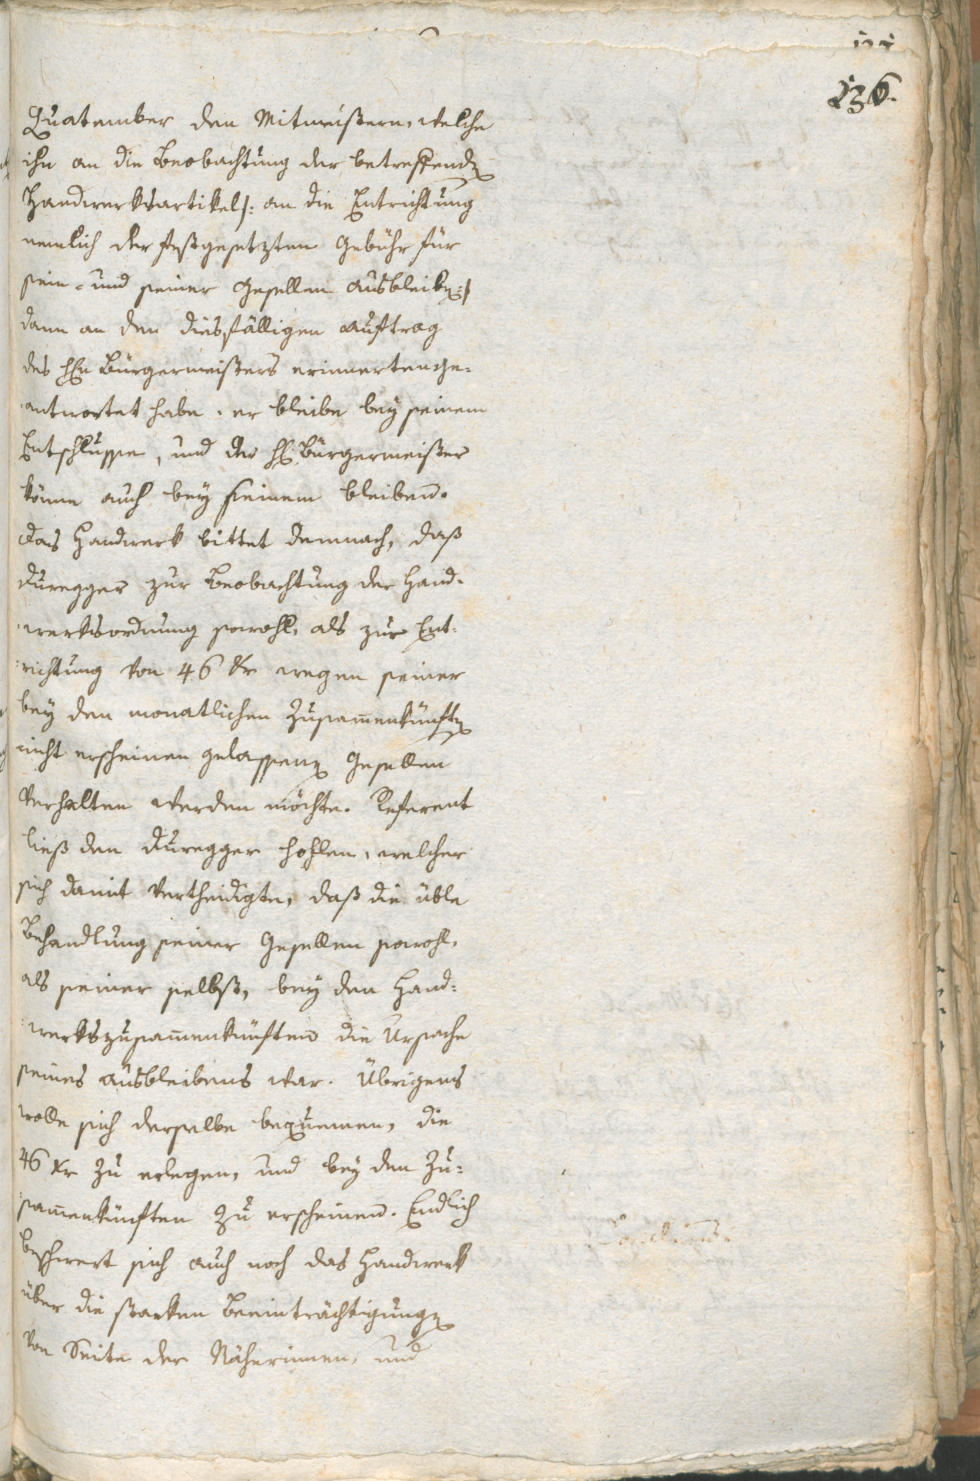 136.
Quatember den Mitmeistern, welche
ihn an die Beobachtung der betreffenden
Handwerksartikel /: an die Entrichtung
nemlich der festgesetzten Gebühr für
sein- und seiner Gesellen Ausbleiben :/
dann an den diesfälligen Auftrag
des Hrn Bürgermeisters erinnerten, ge-
antwortet habe, er bleibe bey seinem
Entschlusse, und der H: Bürgermeister
könne auch bey seinem bleiben.
Das Handwerk bittet demnach, daß
Duregger zur Beobachtung der Hand-
werksordnung sowohl, als zur Ent-
richtung von 46 Kr wegen seiner
bey den monatlichen Zusammenkünften
nicht erscheinen gelassenen Gesellen
verhalten werden möchte. Referent
ließ den Duregger hohlen, welcher
sich damit vertheidigte, daß die üble
Behandlung seiner Gesellen sowohl,
als seiner selbst, bey den Hand-
werkszusammenkünften die Ursache
seines Ausbleibens war. Übrigens
wolle sich derselbe bequemen, die
46 Kr zu erlegen, und bey den Zu-
sammenkünften zu erscheinen. Endlich
beschwert sich auch noch das Handwerk
über die starken Beeinträchtigungen
von Seite der Näherinnen, und